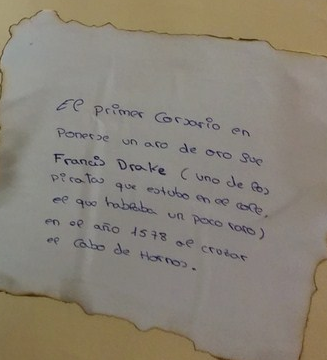 El primer Corsario en
ponerse un aro de oro fue
Francis Drake (uno de los
piratas que estubo en el cole,
el que hablaba un poco raro)
en el año 1578 al cruzar
el Cabo de Hornos.